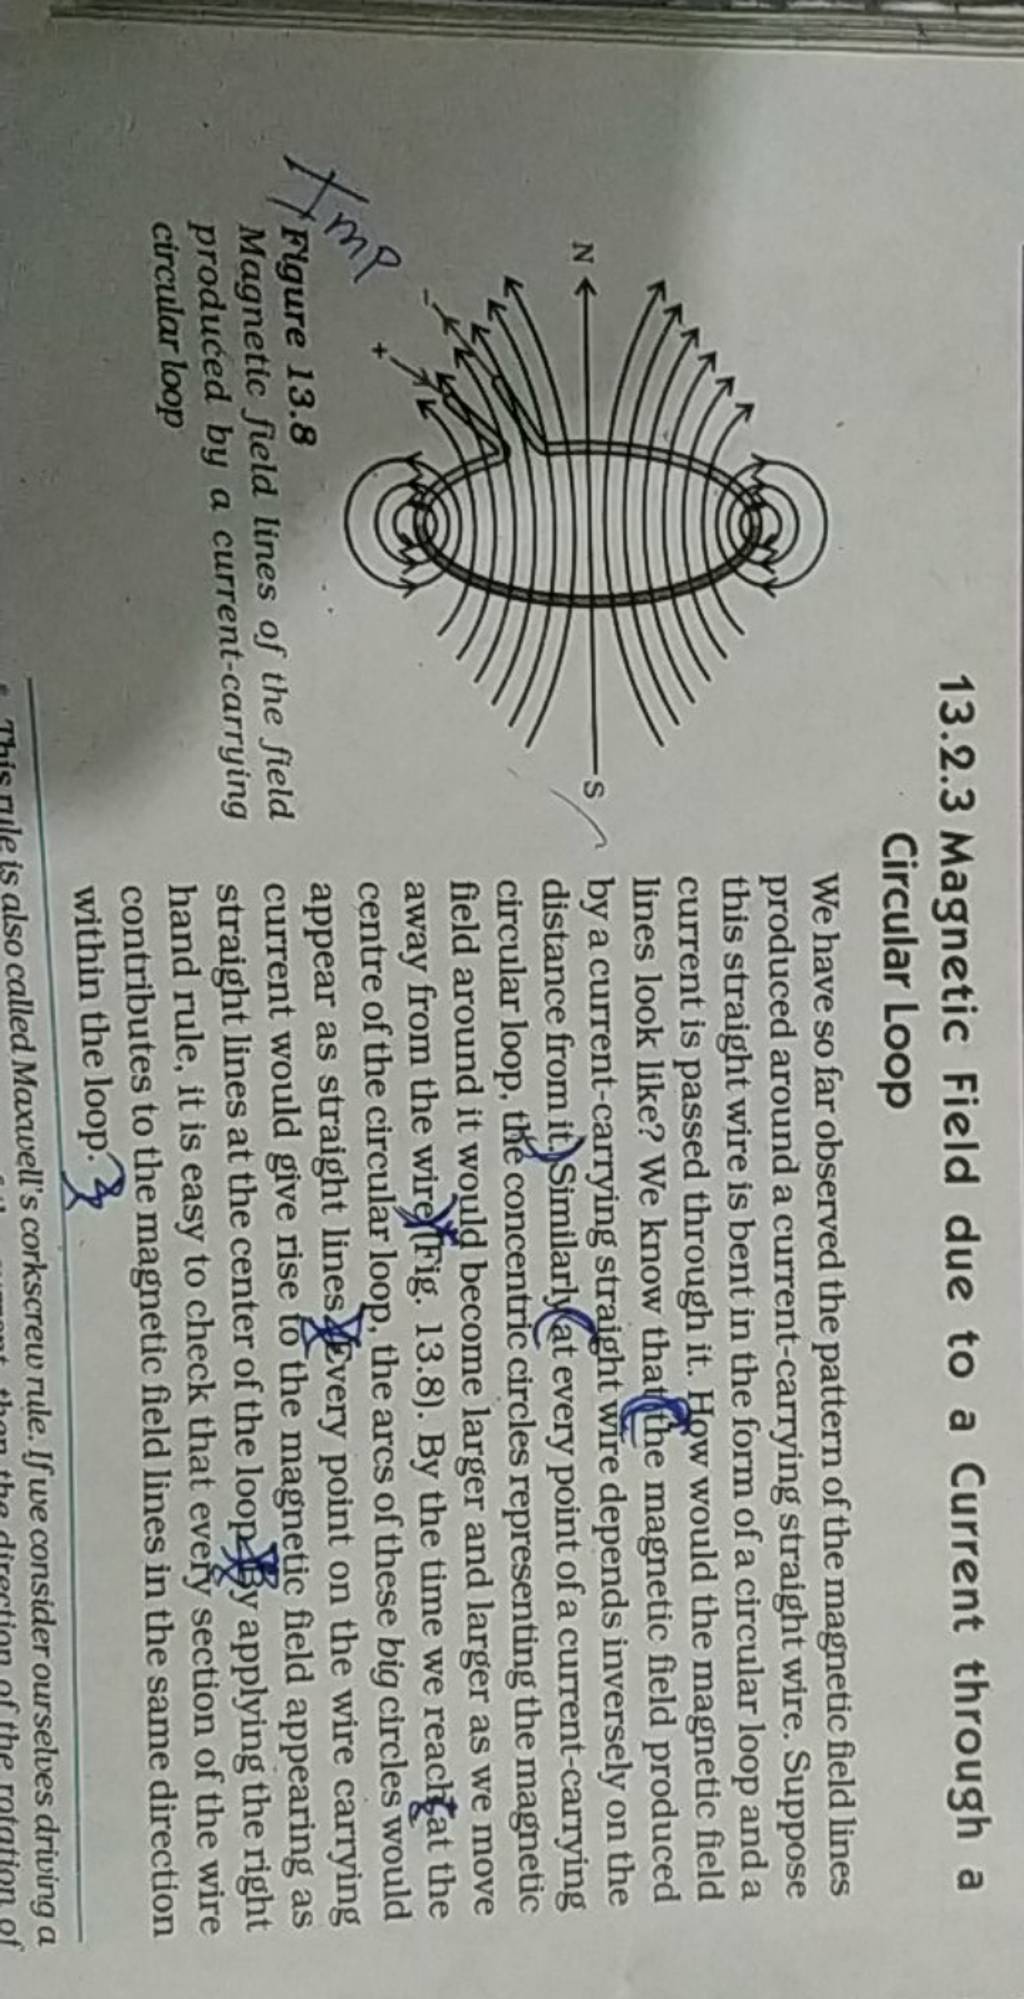 13.2.3 Magnetic Field due to a Current through a
Circular Loop
We have so far observed the pattern of the magnetic field lines
produced around a current-carrying straight wire. Suppose
this straight wire is bent in the form of a circular loop and a
current is passed through it. How would the magnetic field
lines look like? We know that the magnetic field produced
by a current-carrying straight wire depends inversely on the
distance from it. Similarly at every point of a current-carrying
circular loop, the concentric circles representing the magnetic
field around it would become larger and larger as we move
away from the wire (Fig. 13.8). By the time we reach at the
centre of the circular loop, the arcs of these big circles would
appear as straight lines. Every point on the wire carrying
current would give rise to the magnetic field appearing as
straight lines at the center of the loop. By applying the right
hand rule, it is easy to check that every section of the wire
contributes to the magnetic field lines in the same direction
within the loop.
N
S
−
+
Imp
Figure 13.8
Magnetic field lines of the field
produced by a current-carrying
circular loop
This rule is also called Maxwell's corkscrew rule. If we consider ourselves driving a
then the direction of the rotation of